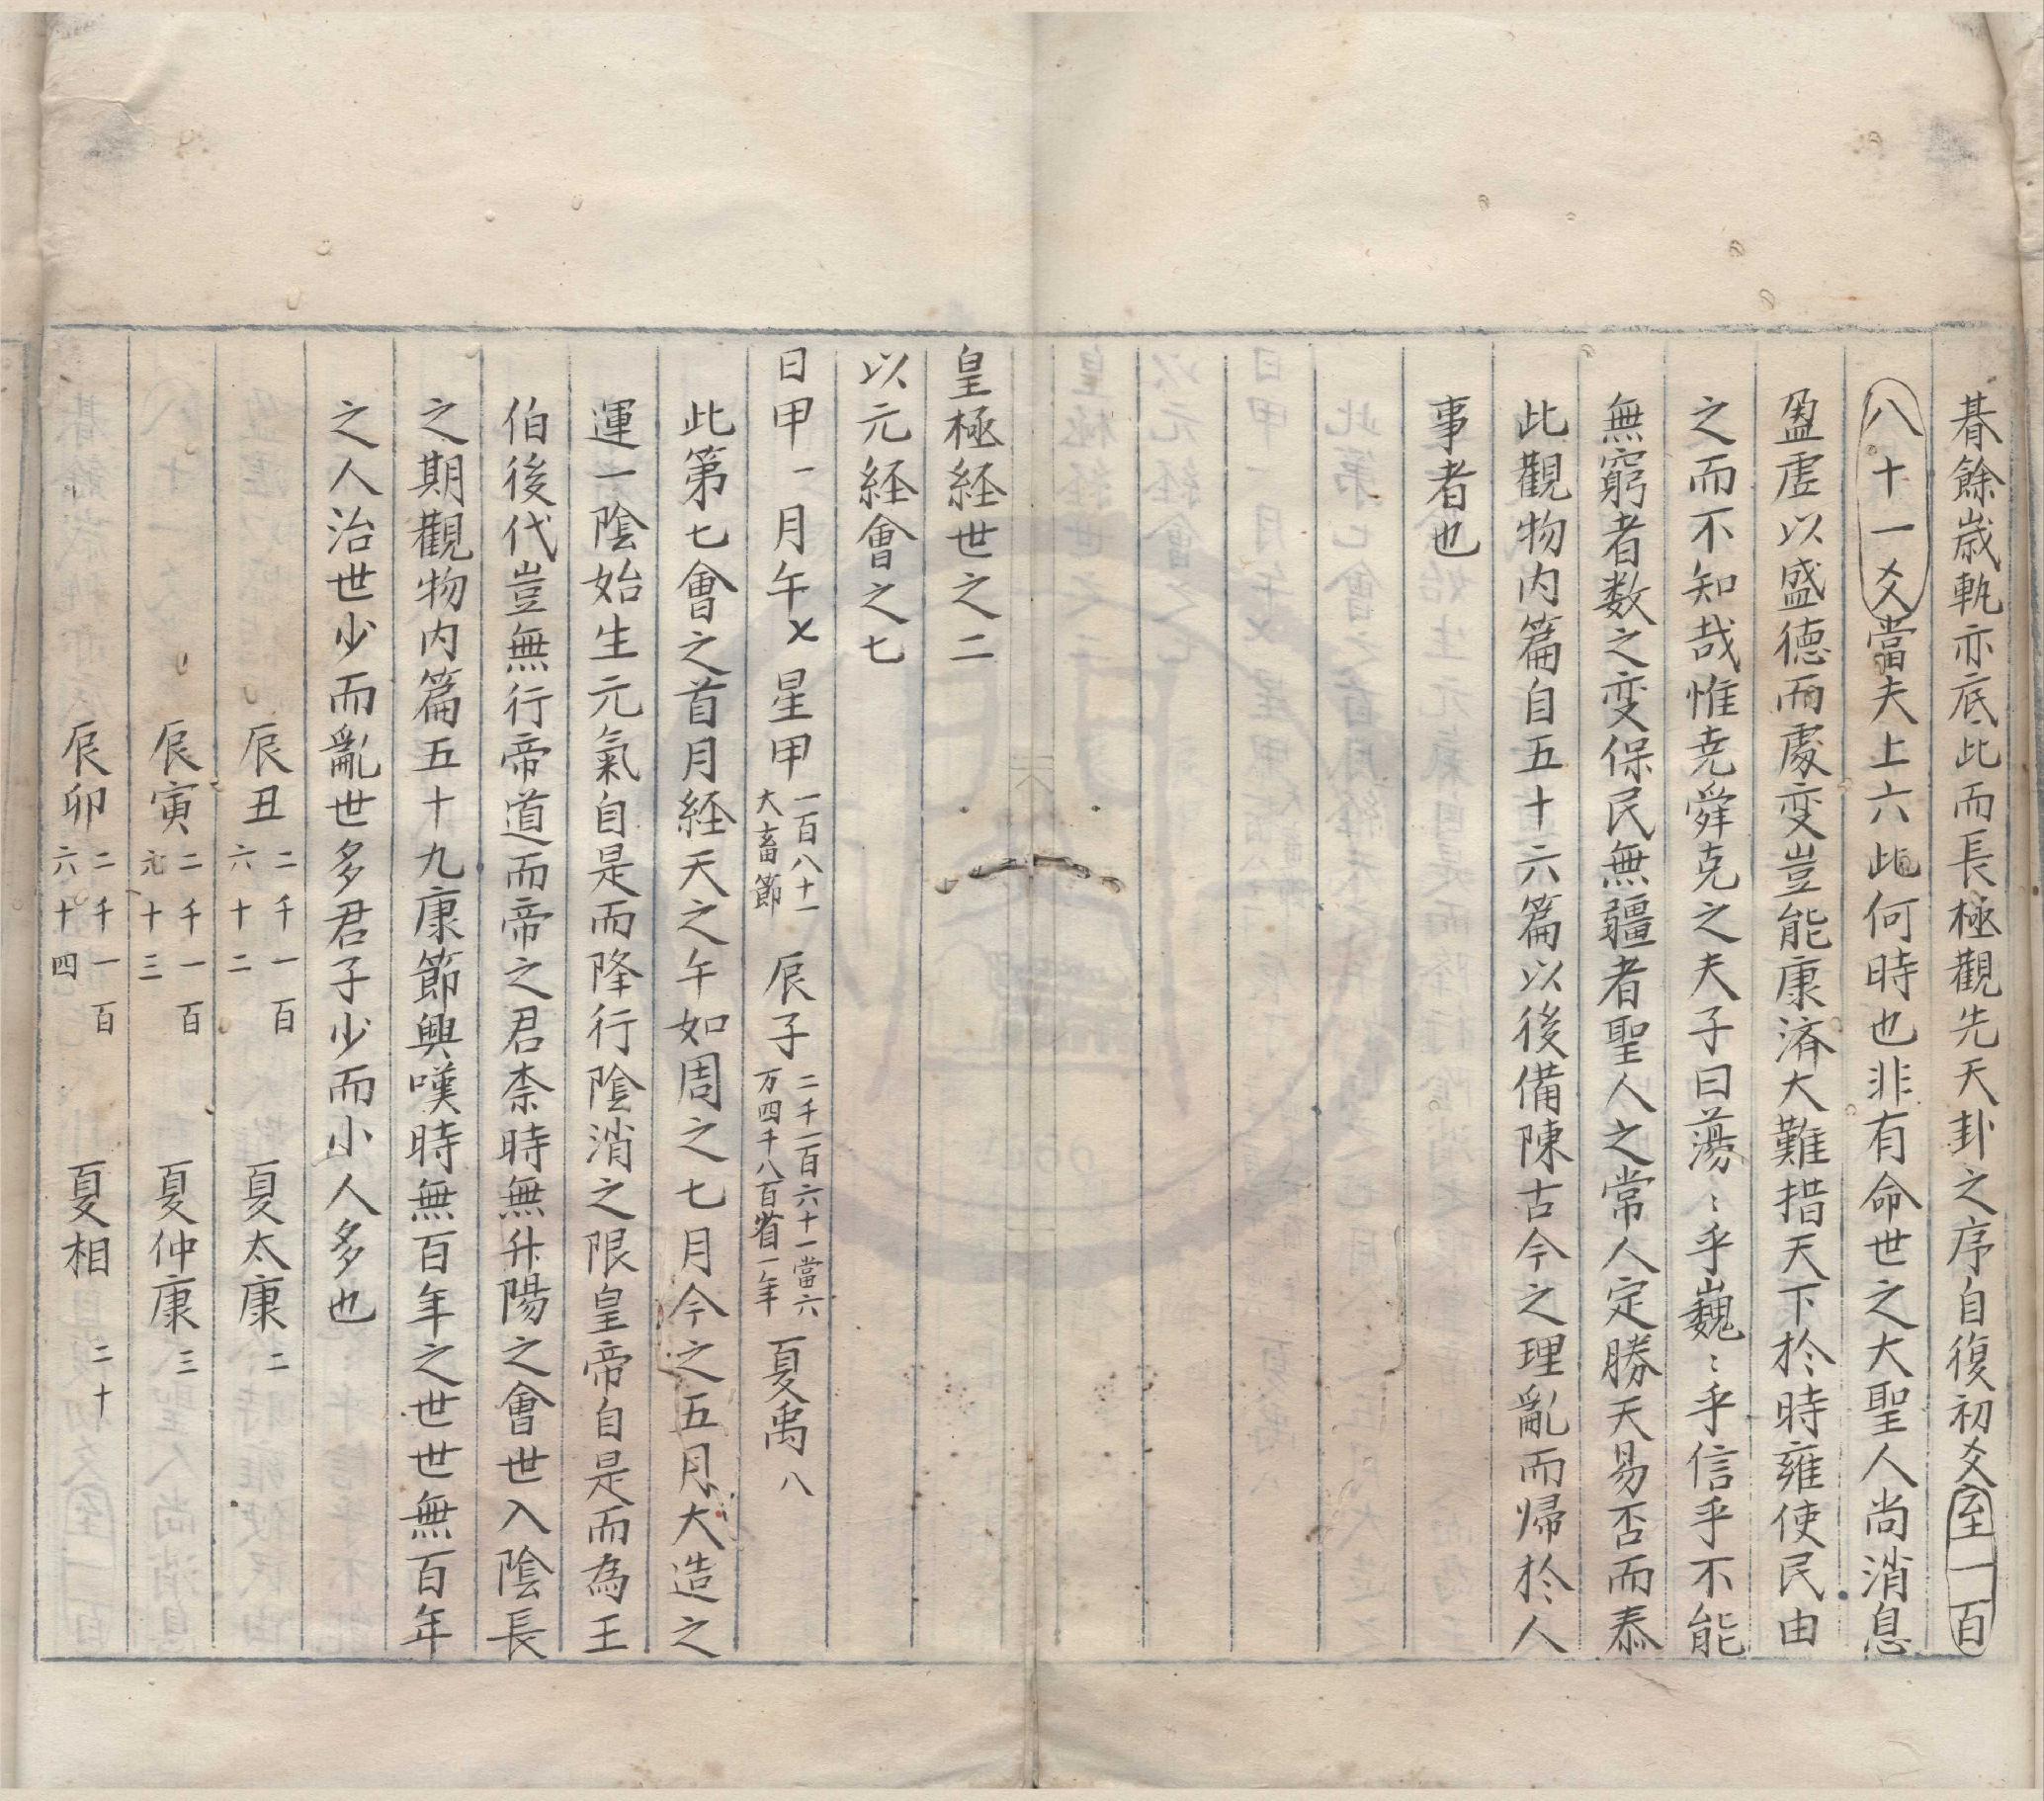 朞餘歳軌亦底此而長極觀先天卦之序自復初爻至一百
八十一爻當夫上六此何時也非有命世之大聖人尚消息
盈虗以盛德而處变豈能康済大難措天下於時雍使民由
之而不知哉惟尭舜克之夫子曰蕩〻乎巍〻乎信乎不能
無窮者数之变保民無疆者聖人之常人定勝天易否而泰
此觀物内篇自五十六篇以後備陳古今之理亂而帰於人
事者也
皇極経世之二
以元経會之七
日甲一月午乂星甲一百八十一大畜節辰子二千一百六十一當六万四千八百省一年夏禹八
此第七會之首月経天之午如周之七月今之五月大造之
運一陰始生元氣自是而降行陰消之限皇帝自是而為王
伯後代豈無行帝道而帝之君柰時無升陽之會世入陰長
之期觀物内篇五十九康節興嘆時無百年之世世無百年
之人治世少而亂世多君子少而小人多也
辰丑二千一百六十二夏太康二
辰寅二千一百六十三夏仲康三
辰卯二千一百六十四夏相二十